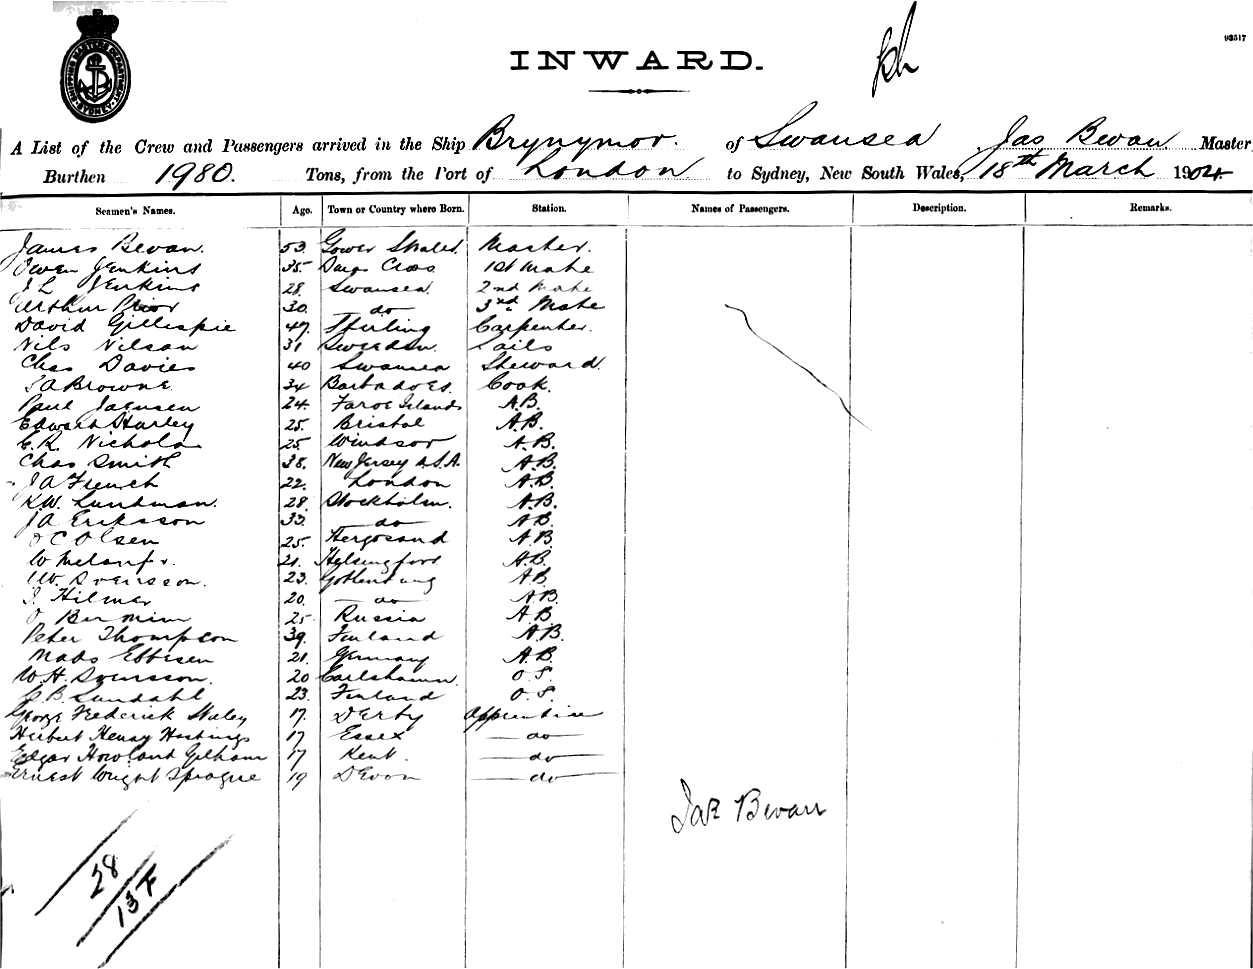 SHIPPING MASTERS DEPARTMENT SYDNEY
93517
INWARD.
A List of the Crew and Passengers arrived in the Ship Brynymor. of Swansea Jas Bevan Master
Burthen 1980. Tons, from the Port of London to Sydney, New South Wales, 18th March 1904
Seamen's Names. Age. Town or Country where Born. Station. Names of Passengers. Description. Remarks.
James Bevan. 53. Gower Master.
Owen Jenkins 35. 1st Mate
J L Jenkins 28. Swansea. 2nd Mate
Arthur Prior 30. do 3rd Mate
David Gillespie 47. Stirling Carpenter.
Nils Nilson 31 Sweden. Sails
Chas Davies 40 Swansea Steward.
Browne 34 Barbadoes. Cook.
Paul 24. Faroe Islands A.B.
Edward Hurley 25. Bristol A.B.
C.R. Nichols 25. Windsor A.B.
Chas Smith 38. New Jersey U.S.A. A.B.
J A French 22. London A.B.
K.W. Lundman. 28. Stockholm. A.B.
J A Eriksson 33. do A.B.
O C Olsen 25. A.B
W 21. Helsingfors A.B.
W. 23. Gothenburg A.B.
Hilmer 20. do A.B.
25 Russia A.B.
Peter Thompson 39. Finland A.B.
Mads Ebbesen 21. Germany A.B.
W.H. 20 Carlshamn. O.S.
Lundahl 23. Finland O.S.
George Frederick 17. Derby Apprentice
Herbert Henry Hastings 17 Essex do
Edgar Howland Gelham 17 Kent. do
Ernest Wright Sprague 19 Devon do
Jas Bevan
28
13 F